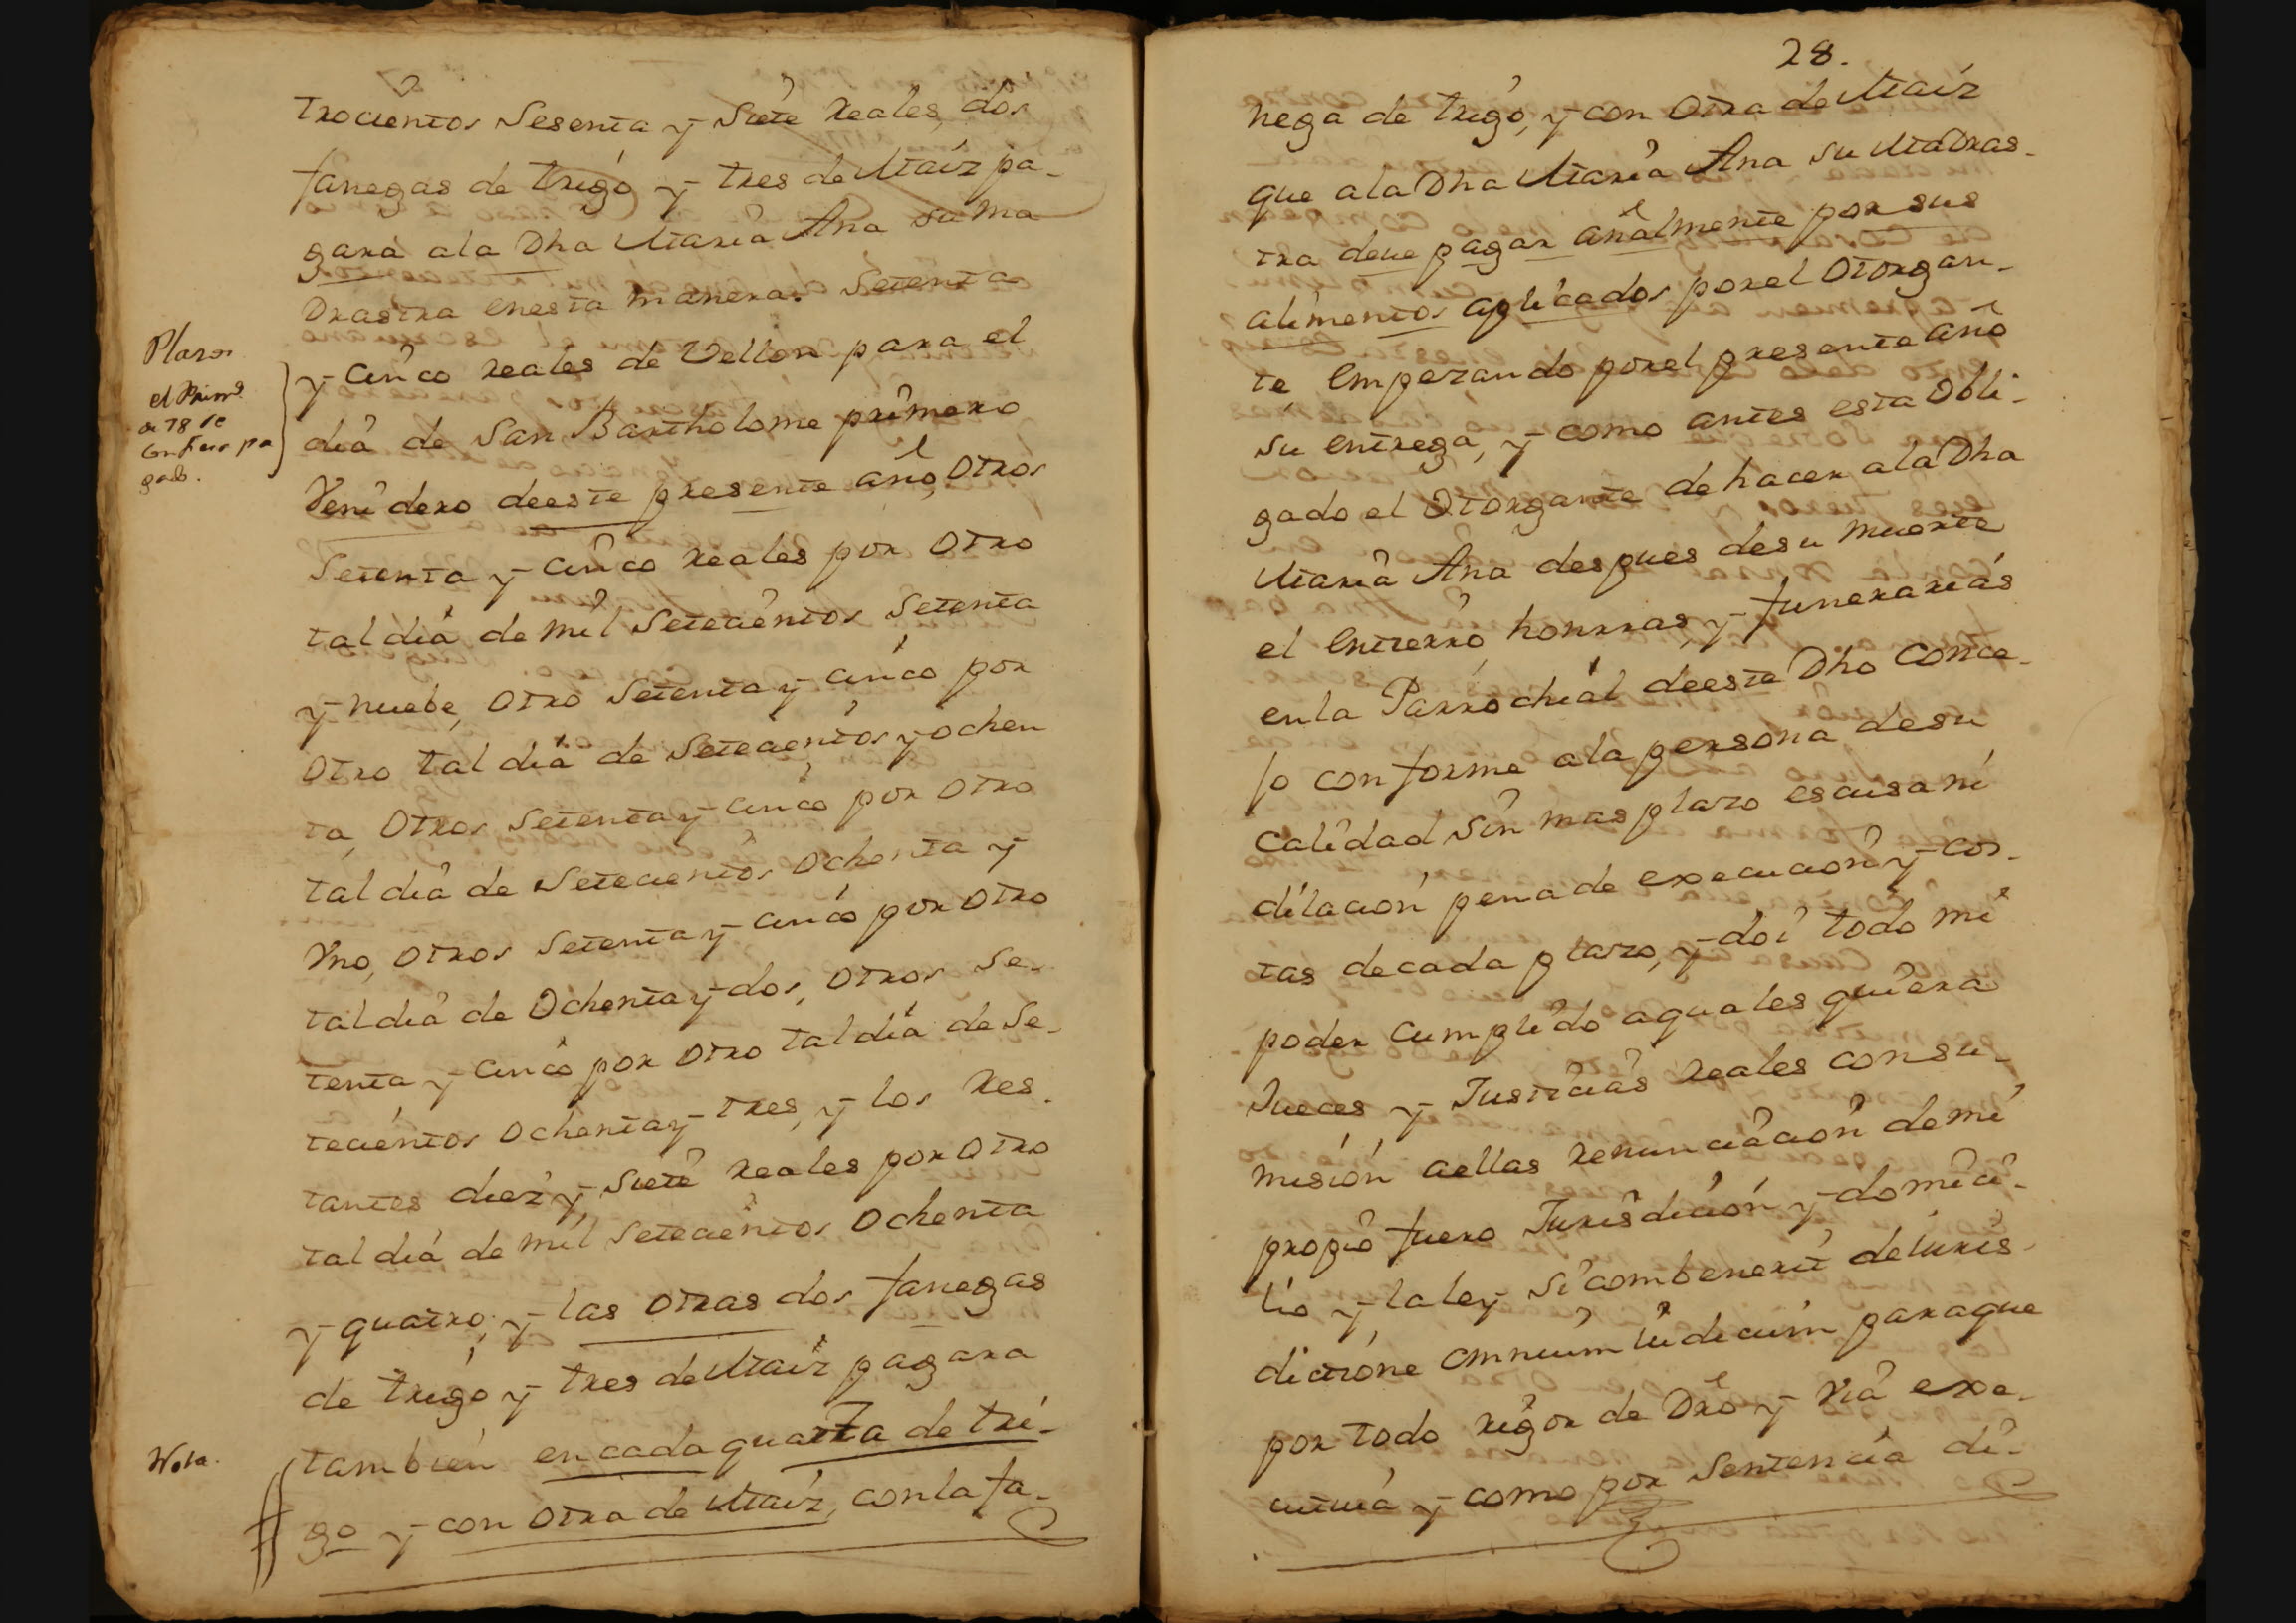 trocientos Sesenta y Siete Reales, dos
fanegas de trigo y tres de Maiz pa-
gará ala Dha Maria Ana su Ma
Drastra enesta manera. Setenta
y cinco Reales de Vellon para el
dia de San Bartholome primero
Venidero deeste presente año, Otros
Setenta y cinco Reales por Otro
tal dia de mil Setecientos Setenta
y nuebe, Otro Setenta y cinco por
Otro tal dia de Setecientos y ochen
ta, Otros Setenta y cinco por Otro
tal dia de Setecientos Ochenta y
Vno, Otros Setenta y cinco por Otro
tal dia de Ochenta y dos, Otros Se-
tenta y cinco por Otro tal dia de Se-
tecientos Ochenta y tres, y los Res-
tantes diez y Siete Reales por Otro
tal dia de mil Setecientos Ochenta
y quatro; y las Otras dos fanegas
de trigo y tres de Maiz pagara
tambien en cada quarta de tri-
go y con Otra de Maiz, con la fa-
Plazos
el Prim.º
de 78 se
pa
gado.
Nota.
28.
nega de trigo, y con Otra de Maiz
que ala Dha Maria Ana su Madras-
tra deve pagar añalmente por sus
alimentos aplicados por el Otorgan-
te, Empezando por el presente año
su entrega, y como antes esta Obli-
gado el Otorgante de hacer ala Dha
Maria Ana despues de su muerte
el Entierro, honrras, y funerarias
en la Parrochial deeste Dho Conce-
jo conforme ala persona de su
Calidad sin mas plazo escusa ni
dilacion pena de execucion y cos-
tas de cada plazo, y doi todo mi
poder cumplido a quales quiera
Jueces y Justicias Reales con su-
mision aellas renunciacion de mi
propio fuero Jurisdicion y domici-
lio y la ley Si combenerit de Iuris-
dictione omnium Iudicum para que
por todo rigor de Dro y Via exe-
cutiva y como por Sentencia di-